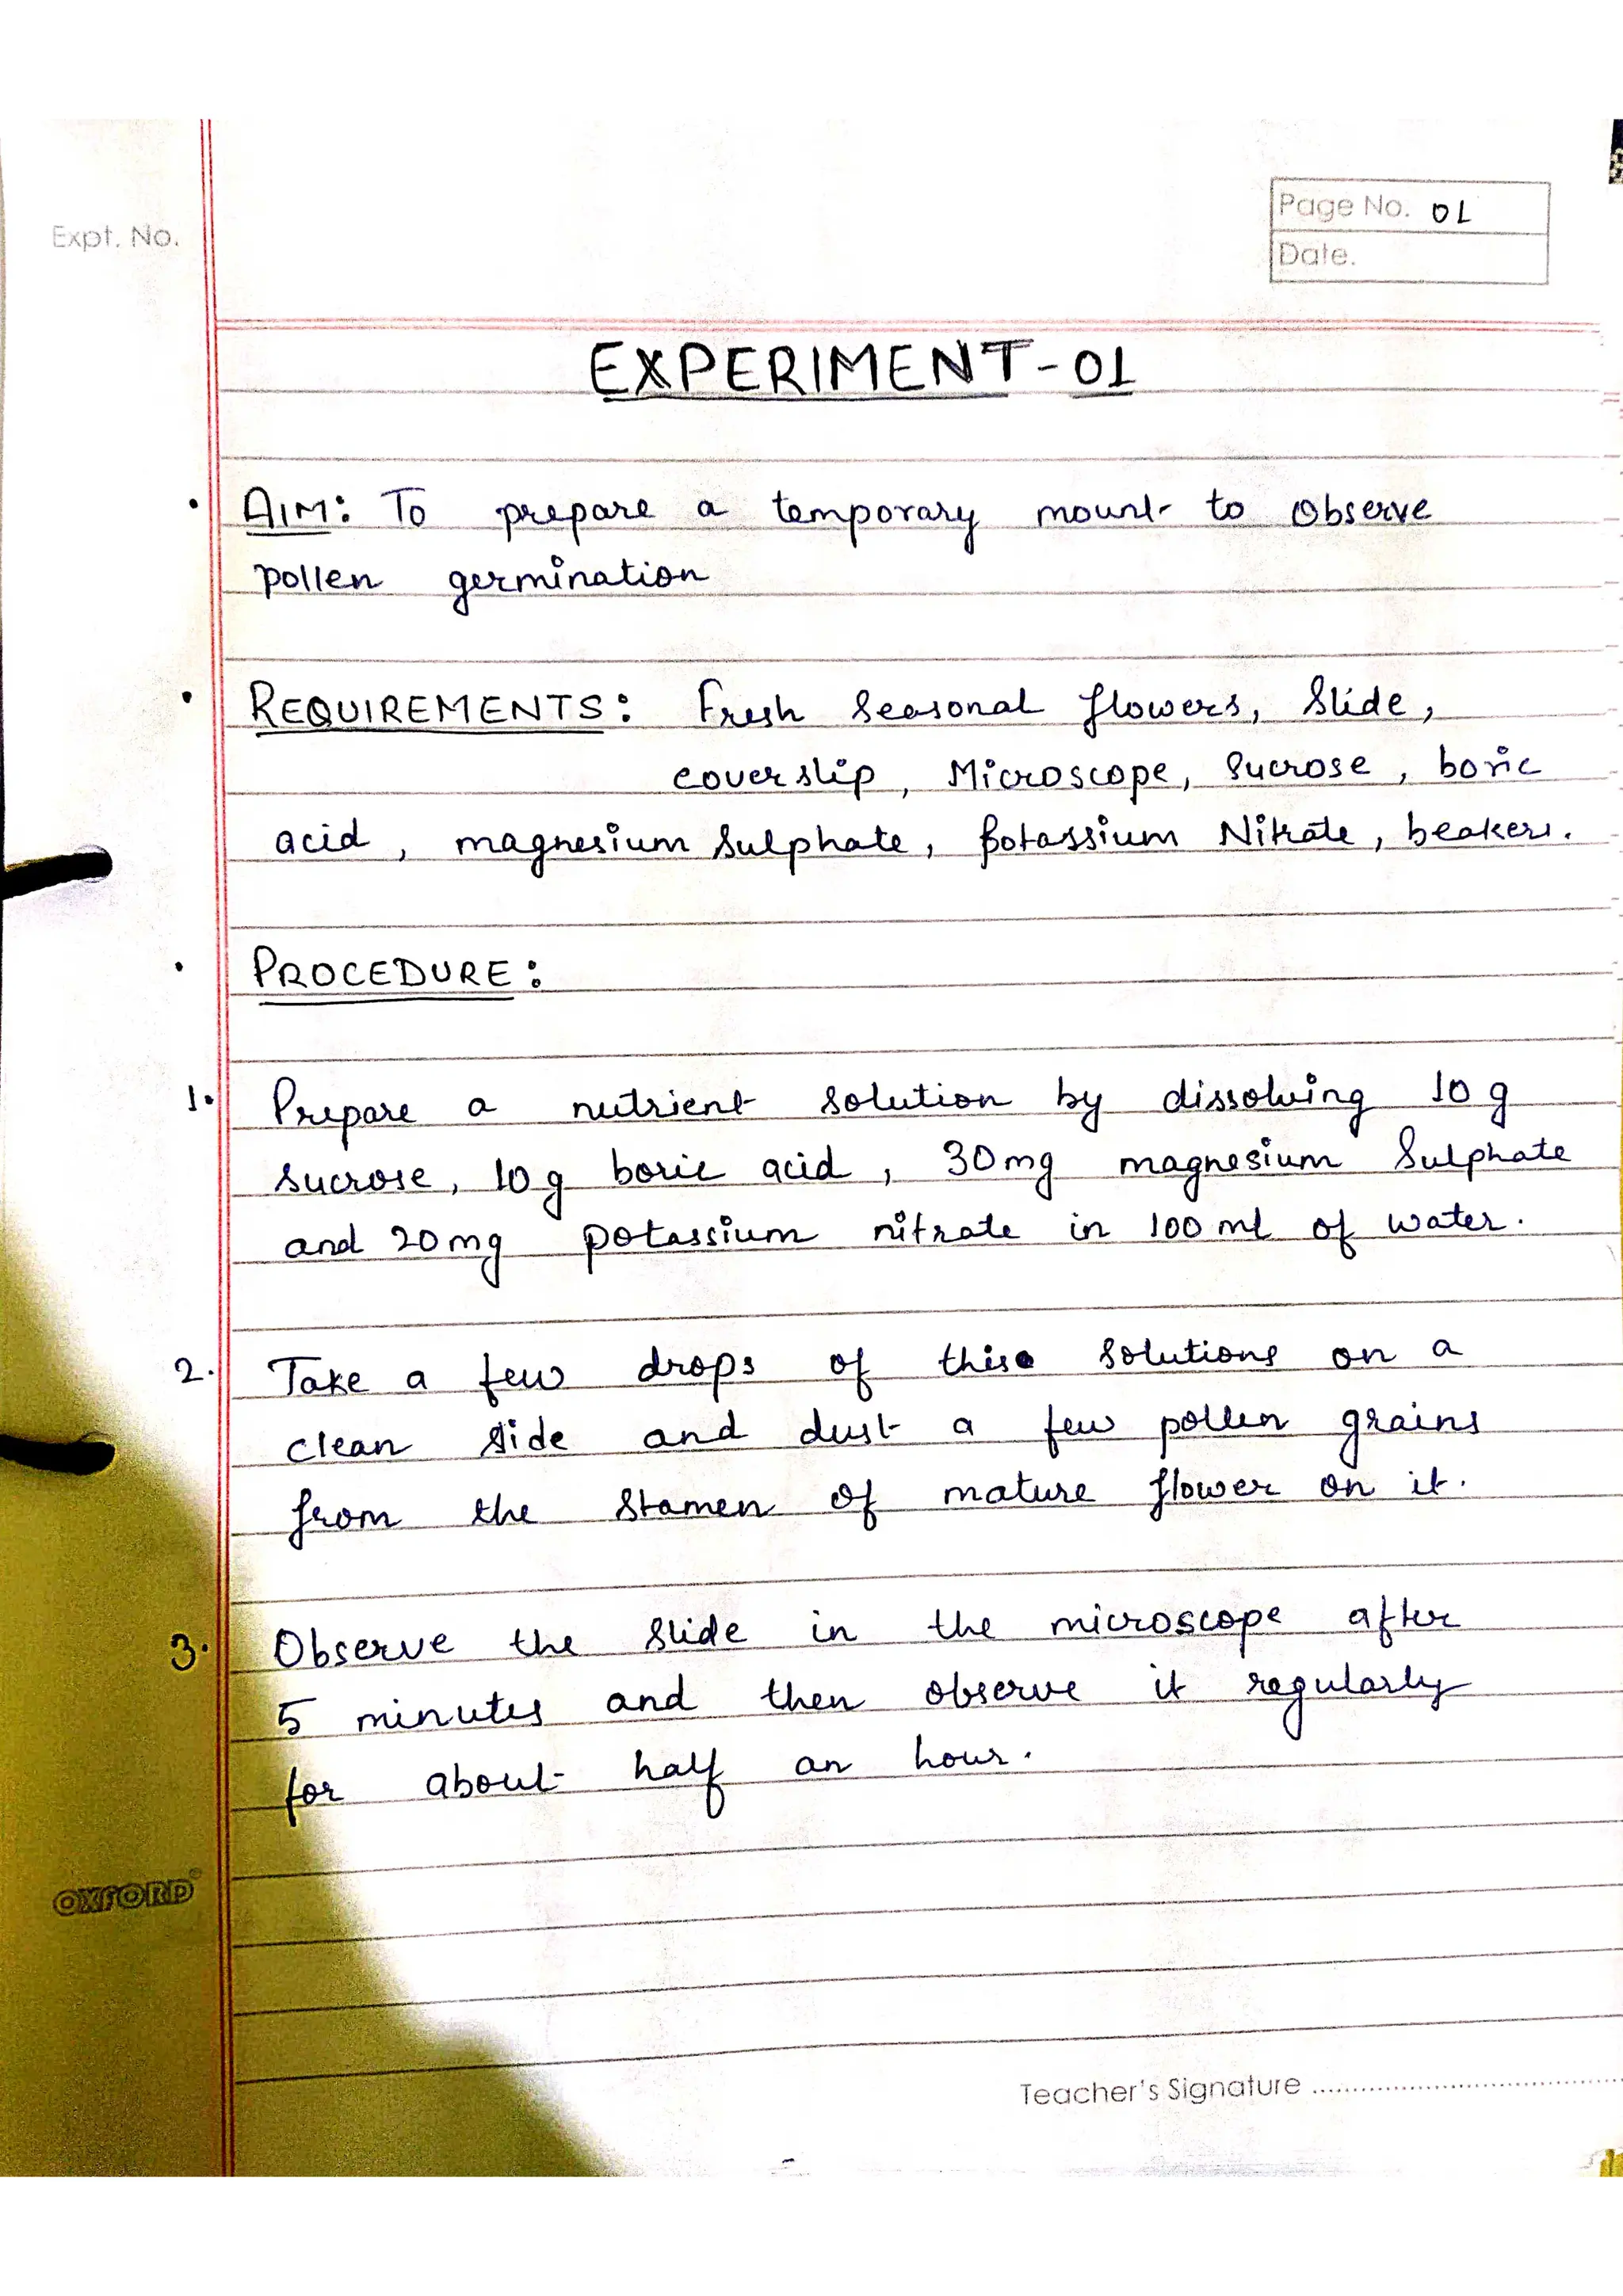 Expt. No.
Page No. 01
Date.
EXPERIMENT-01
• AIM: To prepare a temporary mount to Observe
pollen germination
• REQUIREMENTS: Fresh Seasonal flowers, Slide,
coverslip, Microscope, Sucrose, boric
acid, magnesium Sulphate, Potassium Nitrate, beakers.
• PROCEDURE:
1. Prepare a nutrient solution by dissolving 10 g
sucrose, 10 g boric acid, 30 mg magnesium Sulphate
and 20 mg potassium nitrate in 100 ml of water.
2. Take a few drops of this solutions on a
clean slide and dust a few pollen grains
from the Stamen of mature flower on it.
3. Observe the slide in the microscope after
5 minutes and then observe it regularly
for about half an hour.
OXFORD
Teacher's Signature